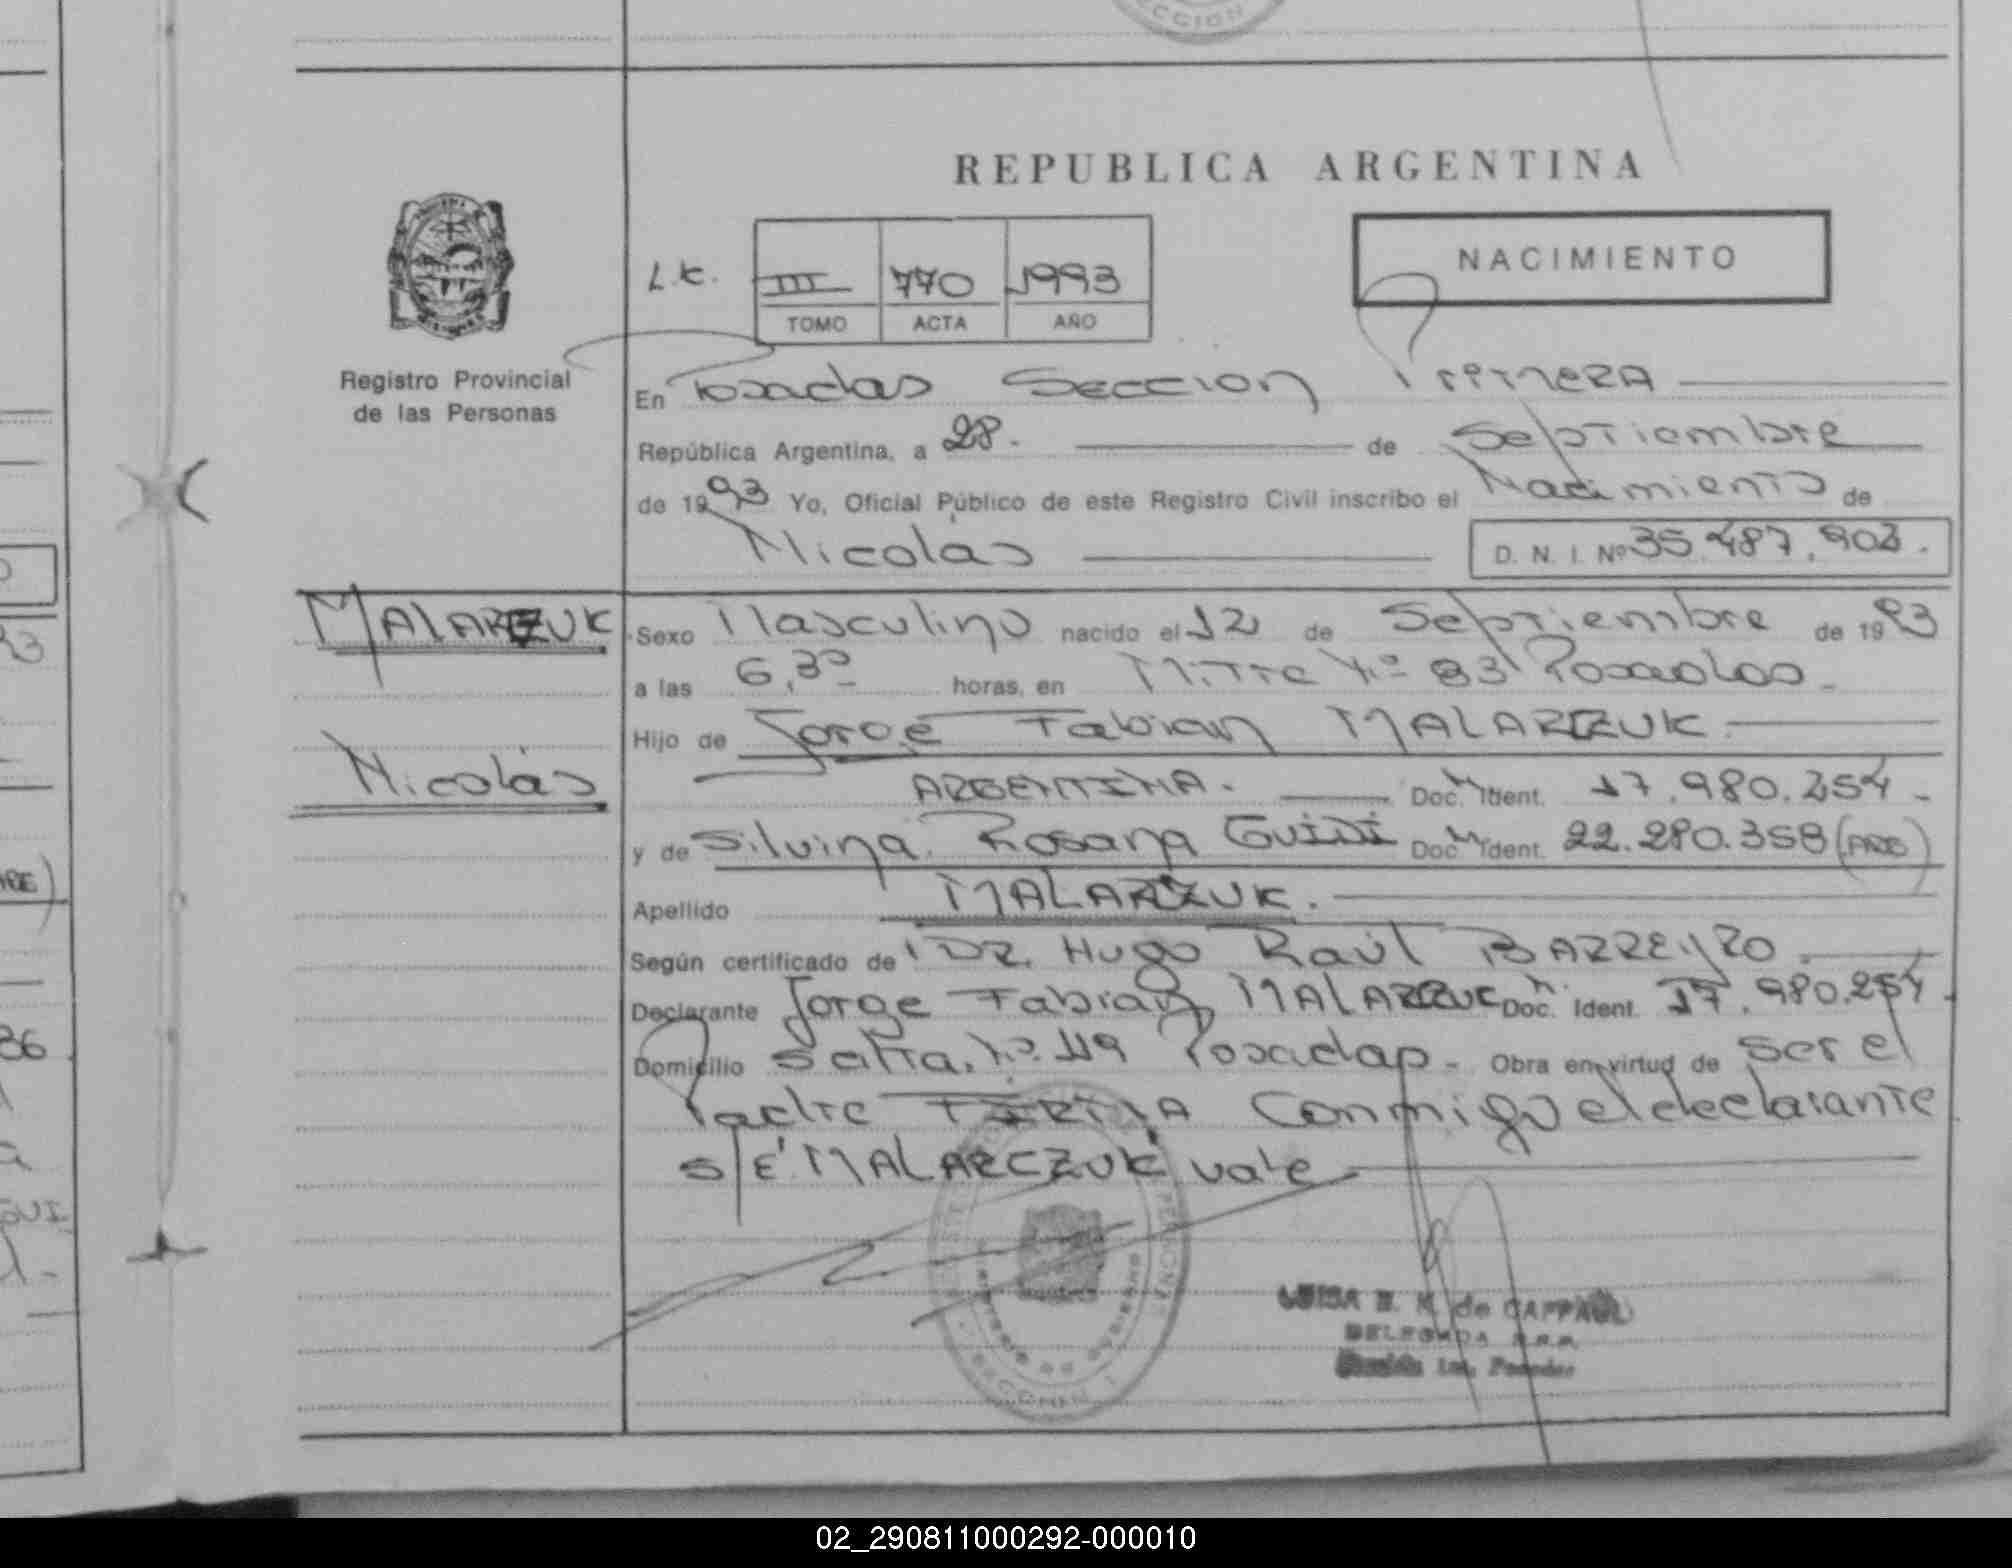 REPUBLICA ARGENTINA
NACIMIENTO
L.K. III 770 1993
TOMO ACTA AÑO
Registro Provincial
de las Personas
En Posadas Seccion Primera
República Argentina, a 28. de Septiembre
de 1993 Yo, Oficial Público de este Registro Civil inscribo el Nacimiento de
Nicolás D. N. I. Nº 35.487.902.
MALARCZUK
Nicolás
Sexo Masculino nacido el 12 de Septiembre de 1993
a las 6,30 horas, en Mitre Nº 83 Posadas.
Hijo de Jorge Fabian MALARCZUK.
ARGENTINA. Doc. N Ident. 17.980.254.
y de Silvina Rosana GUIDI Doc. N Ident. 22.280.358 (ARG)
Apellido MALARCZUK.
Según certificado de DR. Hugo Raúl BARREYRO.
Declarante Jorge Fabian MALARCZUK Doc. N. Ident. 17.980.254.
Domicilio Salta. Nº. 119 Posadas. Obra en virtud de ser el
Padre FIRMA Conmigo el declarante
s/E "MALARCZUK" vale
SECCION 1
LUISA E. K. de CAPPAUL
DELEGADA R.R.P.
Sección 1ra. Posadas
02_290811000292-000010